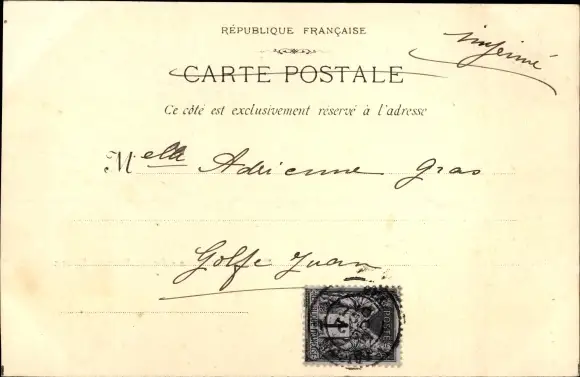 RÉPUBLIQUE FRANÇAISE
imprimé
CARTE POSTALE
Ce côté est exclusivement réservé à l'adresse
Melle Adrienne Gras
Golfe Juan